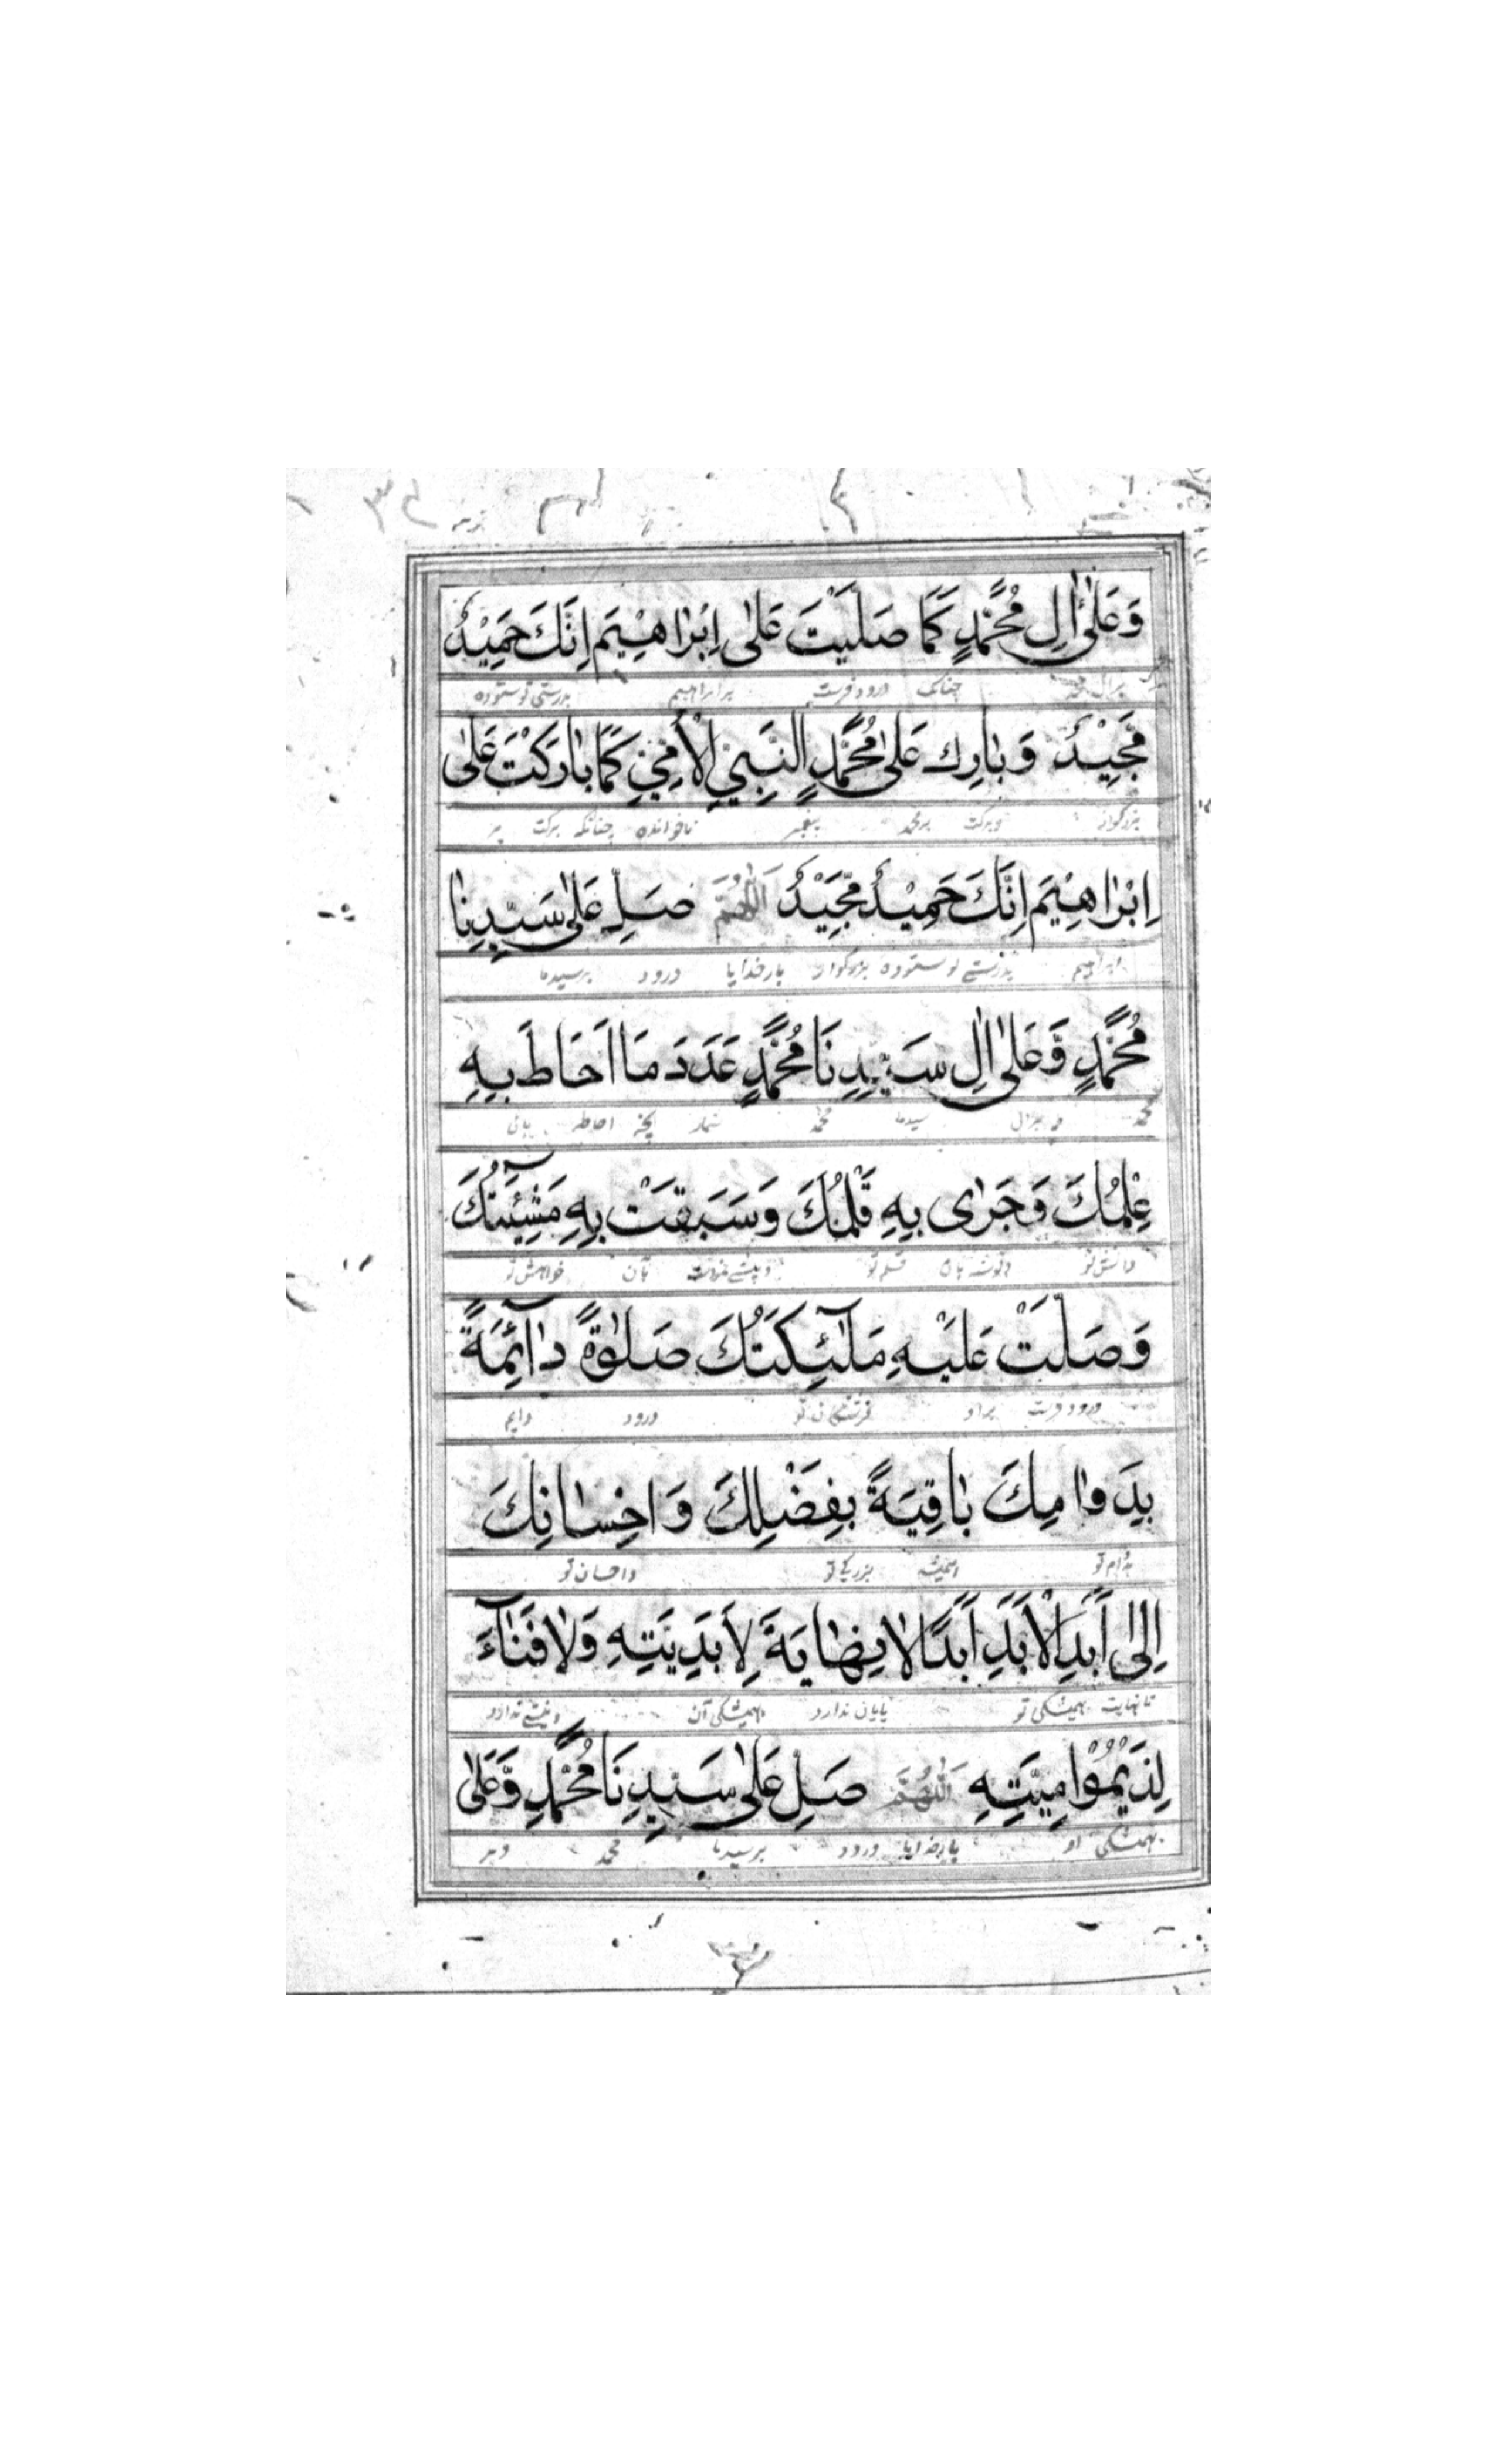 وَعَلٰى اٰلِ مُحَمَّدٍ كَمَا صَلَّيْتَ عَلٰى اِبْرٰاهِيْمَ اِنَّكَ حَمِيْدٌ
برال محمد چنانک درود فرست برابراهیم بدرستی تو ستوده
مَجِيْدٌ وَبٰارِك عَلٰى مُحَمَّدٍ النَّبِيِّ الْأُمِّيِّ كَمَا بٰارَكْتَ عَلٰى
بزرگوار وبرکت برمحمد پیغمبر ناخوانده چنانکه برکت بر
اِبْرٰاهِيْمَ اِنَّكَ حَمِيْدٌ مَّجِيْدٌ اَللّٰهُمَّ صَلِّ عَلٰى سَيِّدِنٰا
ابراهیم بدرستی تو ستوده بزرگوار بارخدایا درود برسیدما
مُحَمَّدٍ وَّعَلٰى اٰلِ سَيِّدِنَا مُحَمَّدٍ عَدَدَ مَا اَحَاطَ بِهِ
محمد و برال سیدما محمد شمار آنچه احاطه
عِلْمُكَ وَجَرٰى بِهِ قَلَمُكَ وَسَبَقَتْ بِهِ مَشِيْئَتُكَ
دانش تو قلم تو بان خواهش تو
وَصَلَّتْ عَلَيْهِ مَلٰٓئِكَتُكَ صَلٰوةً دٰآئِمَةً
درود فرست براو فرشتگان تو درود دایم
بِدَوٰامِكَ بٰاقِيَةً بِفَضْلِكَ وَاِحْسٰانِكَ
بدوام تو همیشه بزرگی تو واحسان تو
اِلٰى أَبَدِ الْأَبَدِ أَبَدًا لٰا نِهٰايَةَ لِأَبَدِيَّتِهِ وَلٰا فَنٰآءَ
تانهایت همیشکی تو پایان ندارد همیشکی آن ونیستی ندارد
لِدَيْمُوْمِيَّتِهِ اَللّٰهُمَّ صَلِّ عَلٰى سَيِّدِنَا مُحَمَّدٍ وَّعَلٰى
همیشکی او بارخدایا درود برسیدما محمد وبر